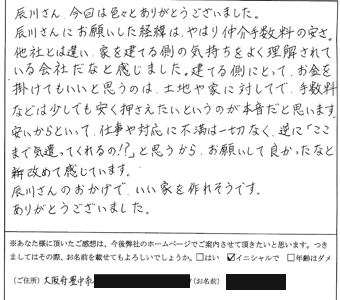 辰川さん、今回は色々とありがとうございました。
辰川さんにお願いした経緯は、やはり仲介手数料の安さ。
他社とは違い、家を建てる側の気持ちをよく理解されて
いる会社だなと感じました。建てる側にとって、お金を
掛けてもいいと思うのは、土地や家に対してで、手数料
などは少しでも安く押さえたいというのが本音だと思います。
安いからといって、仕事や対応に不満は一切なく、逆に「ここ
まで気遣ってくれるの!?」と思うから、お願いして良かったなと
新改めて感じています。
辰川さんのおかげで、いい家を作れそうです。
ありがとうございました。
※あなた様に頂いたご感想は、今後弊社のホームページでご案内させて頂きたいと思います。つき
ましてはその際、お名前を載せてもよろしいでしょうか。□はい ☑イニシャルで □年齢はダメ
(ご住所) 大阪府豊中市 (お名前)